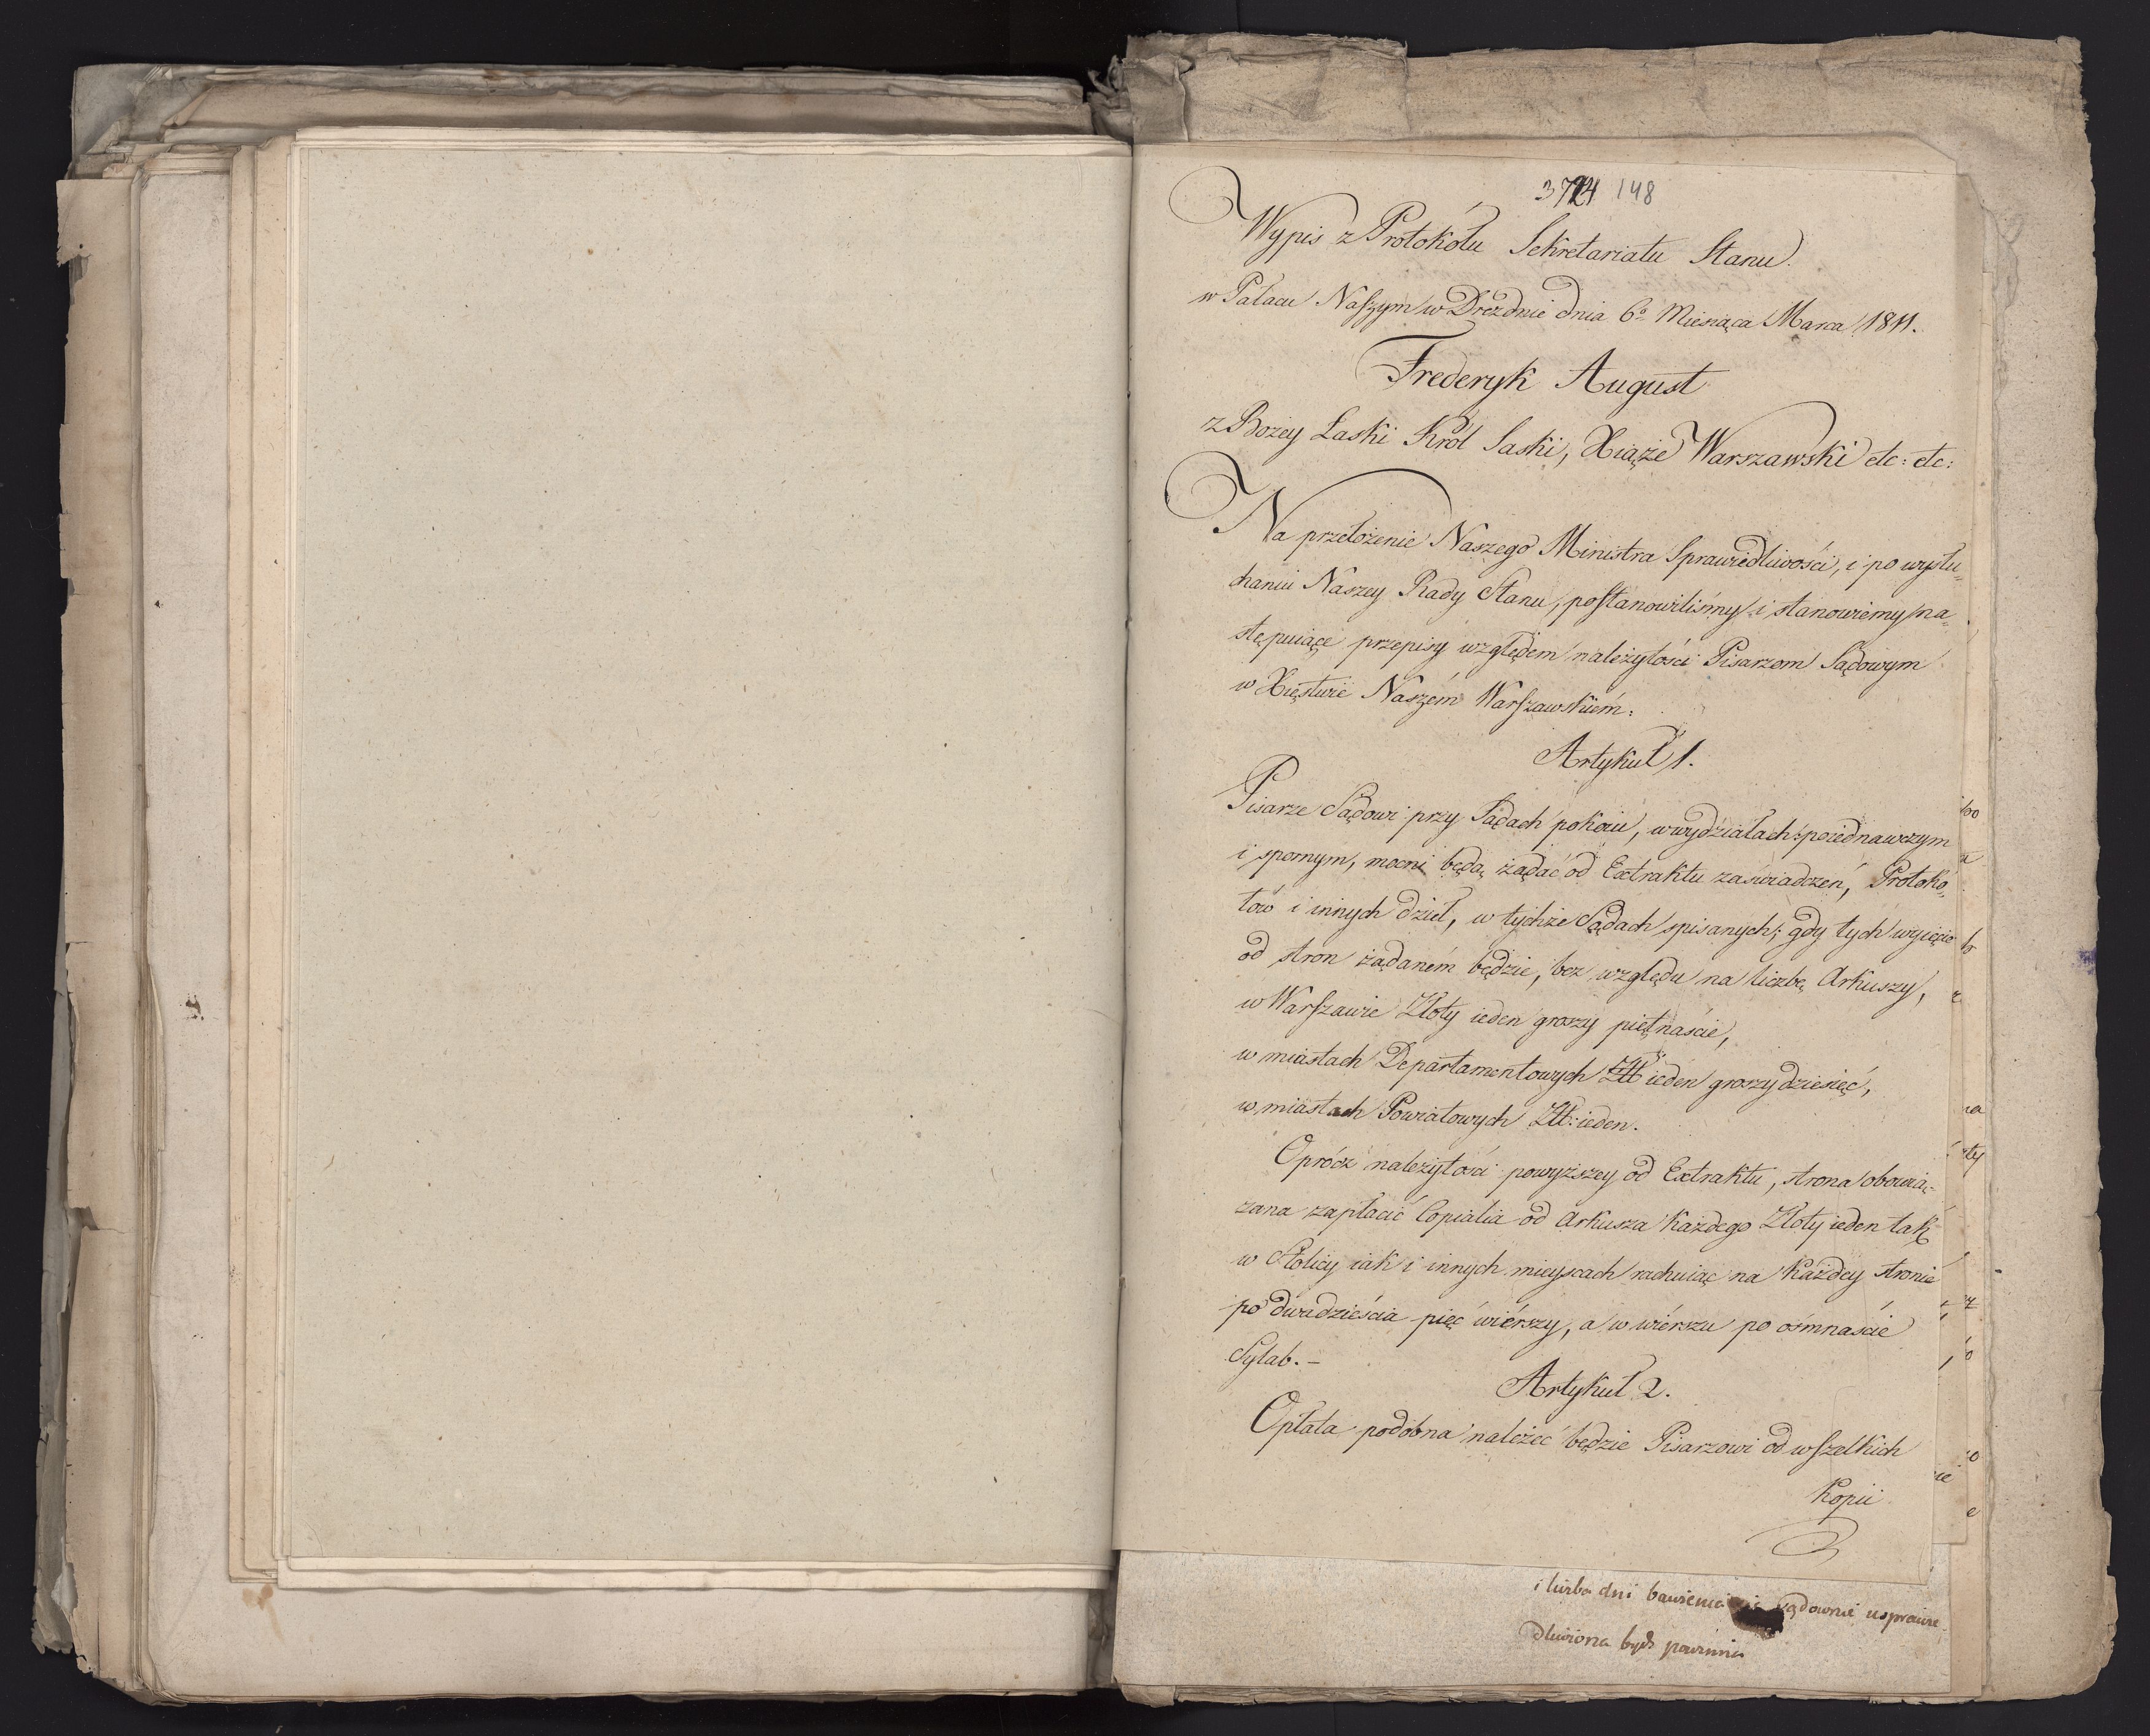 148
Wypis z Protokółu Sekretariatu Stanu.
w Pałacu Naszym w Dreźdnie dnia 6º Miesiąca Marca 1811.
Frederyk August
z Bożey Łaski Król Saski, Xiąże Warszawski etc: etc:
Na przełożenie Naszego Ministra Sprawiedliwości, i po wysłu-
chaniu Naszey Rady Stanu, postanowiliśmy i stanowiemy na-
stępuiące przepisy względem należytości Pisarzom Sądowym
w Xięstwie Naszém Warszawskiém:
Artykuł 1.
Pisarze Sądowi przy Sądach pokoiu, w wydziałach: poiednawczym
i spornym, mocni będą żądać od Extraktu zaświadczeń, Protokó-
łów i innych dzieł, w tychże Sądach spisanych; gdy tych wyięcie
od stron żądaném będzie, bez względu na liczbę Arkuszy,
w Warszawie Złoty ieden groszy piętnaście,
w miastach Departamentowych Złł: ieden groszy dziesięć,
w miastach Powiatowych Złł: ieden.
Oprócz należytości powyższey od Extraktu, strona obowią-
zana zapłacić Copialia od Arkusza każdego Złoty ieden tak
w Stolicy iak i innych mieyscach rachuiąc na każdey stronie
po dwadzieścia pięć wiérszy, a w wiérszu po ośmnaście
Sylab. -
Artykuł 2.
Opłata podobna należeć będzie Pisarzowi od wszelkich
Kopii
i liczba dni bawienia sądownie usprawie
dliwiona bydź powinna